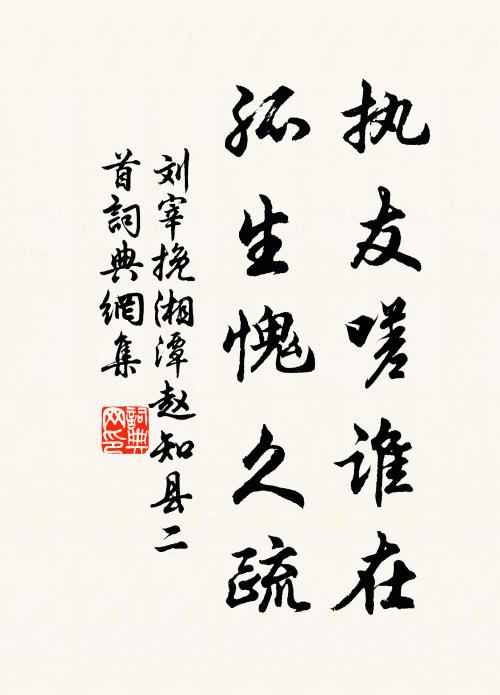 执友嗟谁在
孤生愧久疏
刘宰挽湘潭赵知县二
首詞典網集
詞典
网印